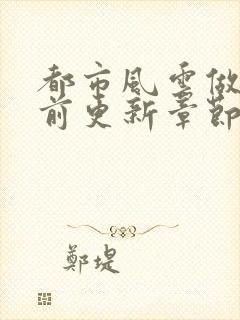 都市風雲做
前更新章節
鄭堤